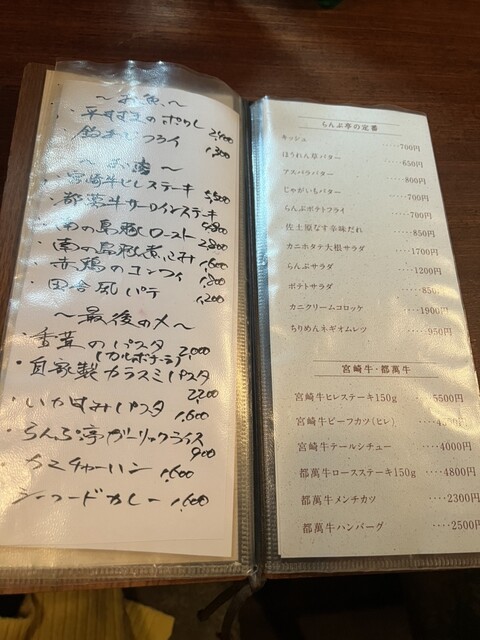 ～お魚～
・平すずきのポワレ 2,400
・鯵あじフライ 1,300
～お肉～
・宮崎牛ヒレステーキ 5,500
・都萬牛サーロインステーキ 4,800
・南の島豚ロースト 2,800
・南の島豚煮込み 1,600
・赤鶏のコンフィ 1,800
・田舎風パテ 1,200
～最後の〆～
・香茸のパスタ 2,000
(カルボナーラ)
・自家製カラスミパスタ 2200
・いかすみパスタ 1,600
・らんぷ亭ガーリックライス 900
・カニチャーハン 1,600
シーフードカレー 1,600
らんぷ亭の定番
キッシュ ‥‥700円
ほうれん草バター ‥‥650円
アスパラバター ‥‥800円
じゃがいもバター ‥‥700円
らんぷポテトフライ ‥‥700円
佐土原なす辛味だれ ‥‥850円
カニホタテ大根サラダ ‥‥1700円
らんぷサラダ ‥‥1200円
ポテトサラダ ‥‥850
カニクリームコロッケ ‥‥1900円
ちりめんネギオムレツ ‥‥950円
宮崎牛・都萬牛
宮崎牛ヒレステーキ150g ‥‥5500円
宮崎牛ビーフカツ(ヒレ)
宮崎牛テールシチュー ‥‥4000円
都萬牛ロースステーキ150g ‥‥4800円
都萬牛メンチカツ ‥‥2300円
都萬牛ハンバーグ ‥‥2500円